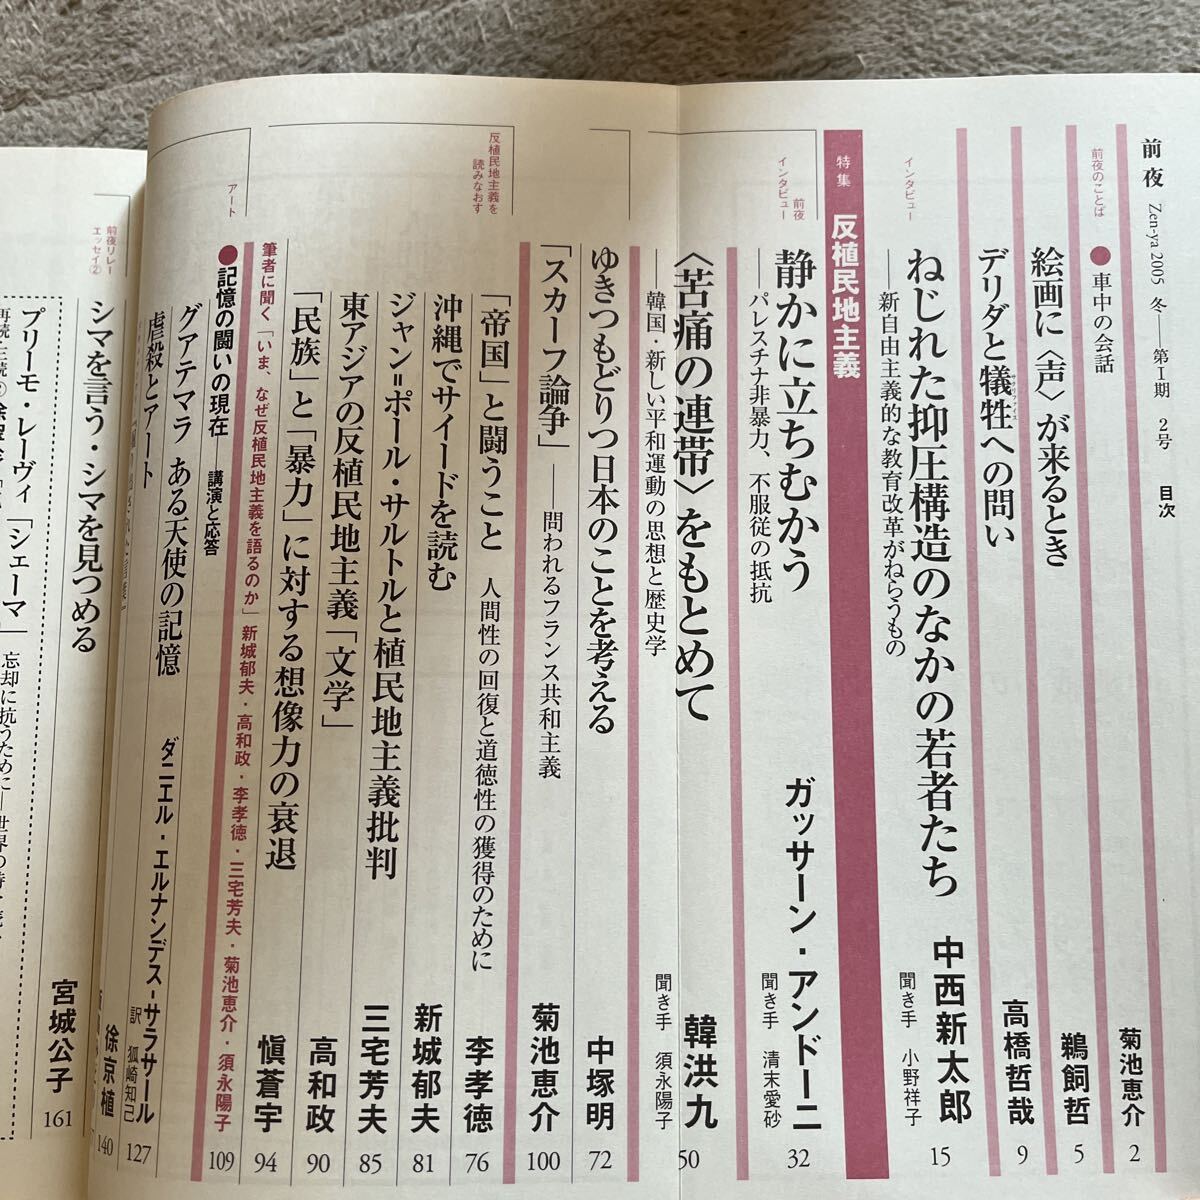 前夜 Zen-ya 2005 冬――第Ⅰ期 2号 目次
前夜のことば
●車中の会話 菊池恵介 2
絵画に〈声〉が来るとき 鵜飼哲 5
デリダと犠牲への問い 高橋哲哉 9
サクリファイス
インタビュー
ねじれた抑圧構造のなかの若者たち 中西新太郎 15
――新自由主義的な教育改革がねらうもの 聞き手 小野祥子
特集 反植民地主義
前夜
インタビュー
静かに立ちむかう ガッサーン・アンドーニ 32
――パレスチナ非暴力、不服従の抵抗 聞き手 清末愛砂
〈苦痛の連帯〉をもとめて 韓洪九 50
――韓国・新しい平和運動の思想と歴史学 聞き手 須永陽子
ゆきつもどりつ日本のことを考える 中塚明 72
「スカーフ論争」――問われるフランス共和主義 菊池恵介 100
反植民地主義を
読みなおす
「帝国」と闘うこと 人間性の回復と道徳性の獲得のために 李孝徳 76
沖縄でサイードを読む 新城郁夫 81
ジャン=ポール・サルトルと植民地主義批判 三宅芳夫 85
東アジアの反植民地主義「文学」 高和政 90
「民族」と「暴力」に対する想像力の衰退 愼蒼宇 94
筆者に聞く「いま、なぜ反植民地主義を語るのか」新城郁夫・高和政・李孝徳・三宅芳夫・菊池恵介・須永陽子 109
アート
●記憶の闘いの現在 講演と応答
グアテマラ ある天使の記憶 ダニエル・エルナンデス-サラサール 127
訳 狐崎知己
虐殺とアート 徐京植 140
前夜リレー
エッセイ②
シマを言う・シマを見つめる 宮城公子 161
プリーモ・レーヴィ「シェーマ」 忘却に抗うために―世界の詩